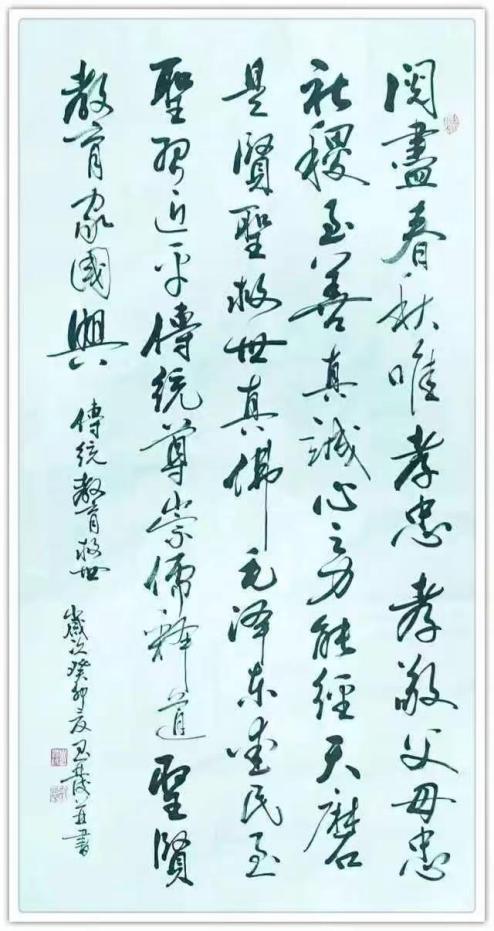 阅盡春秋唯孝忠孝敬父母忠
社稷至善真誠心之力能經天磨
是賢聖救世真佛毛泽东爱民至
聖習近平傳統尊崇儒釋道聖賢
教育家國興
傳統教育救世
歲次癸卯夏書